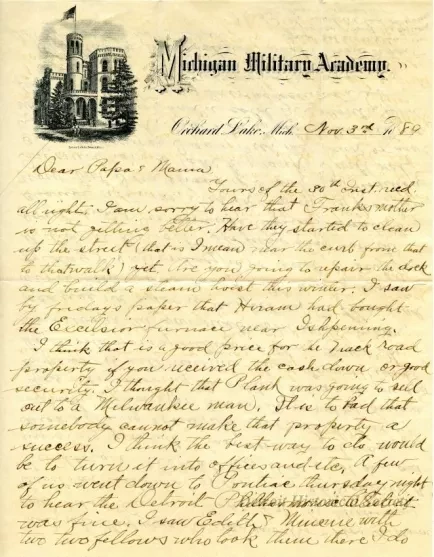 Michigan Military Academy.
Orchard Lake, Mich. Nov. 3rd 1889
Dear Papa & Mama
Yours of the 30th Inst. recd.
all right. I am sorry to hear that Franks mother
is not getting better. Have they started to clean
up the street (that is I mean near the curb from that
to that walk) yet. Are you going to repair the dock
and build a steam hoist this winter. I saw
by fridays paper that Hiram had bought
the Excelsior furnace near Ishpeming.
I think that is a good price for the Track Road
property if you recieved the cash down or good
security. I thought that Plank was going to sell
out to a Milwaukee man. It is to bad that
somebody cannot make that property a
success. I think the best way to do would
be to turn it into offices and etc. A few
of us went down to Pontiac thursday night
to hear the Detroit
was fine. I saw Edith & with
two two fellows who took them there I do